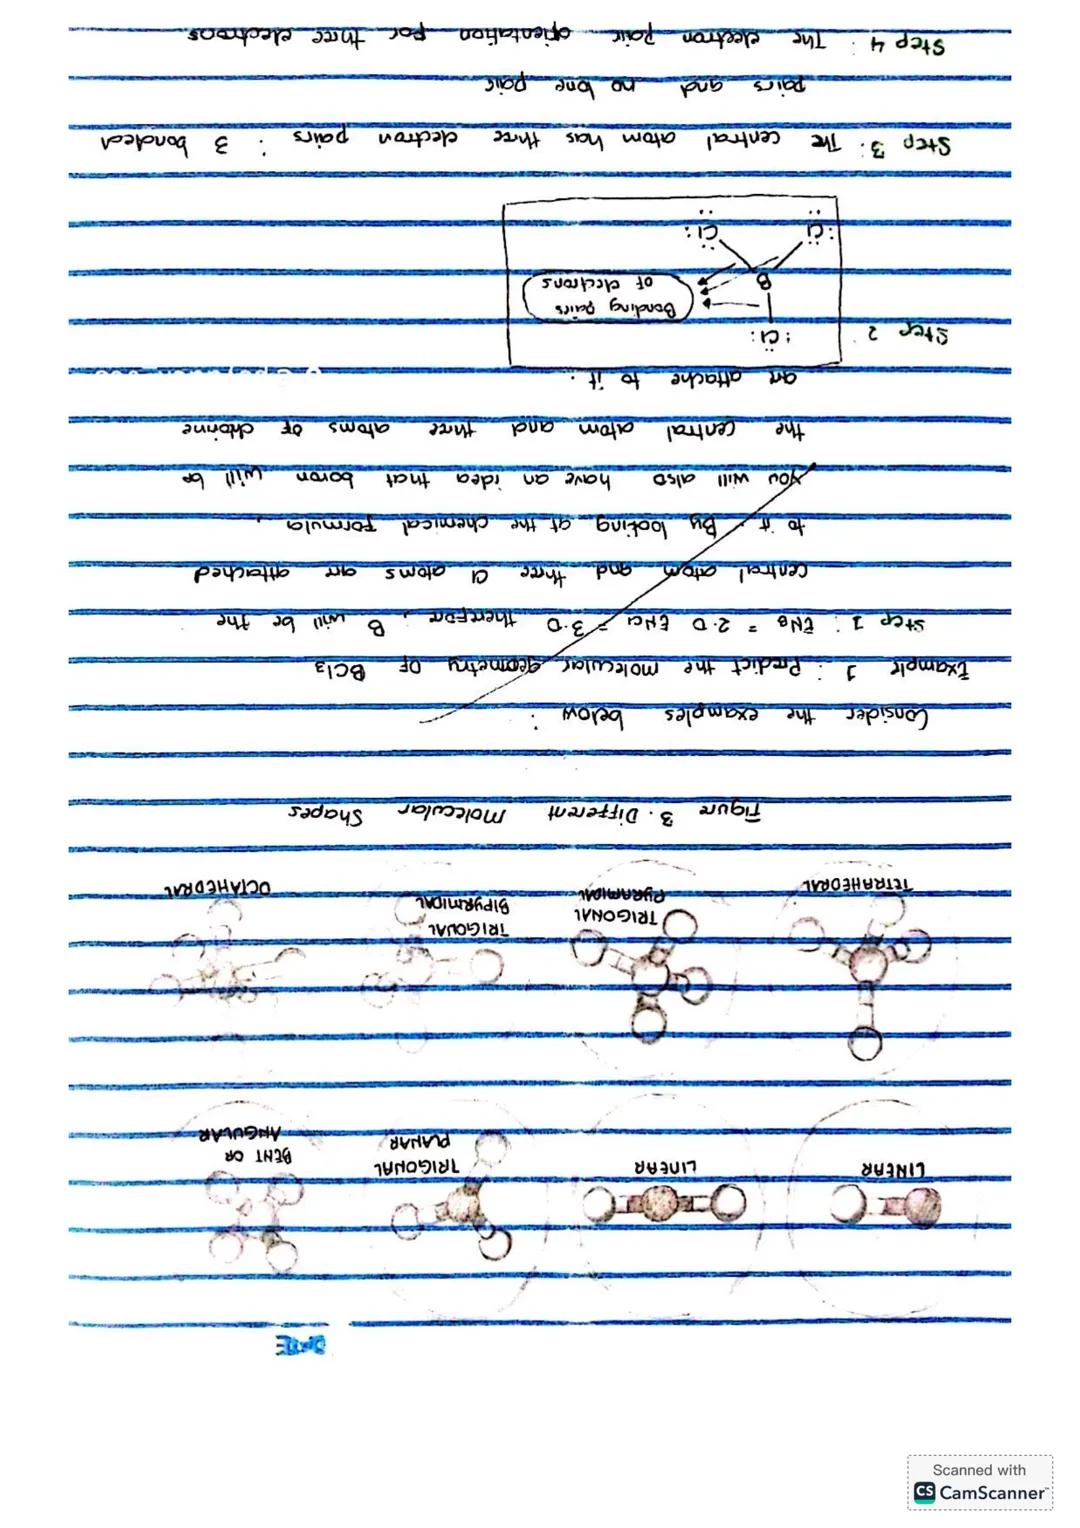 DATE
LINEAR LINEAR TRIGONAL PLANAR BENT OR ANGULAR
TETRAHEDRAL TRIGONAL PYRAMIDAL TRIGONAL BIPYRMIDAL OCTAHEDRAL
Figure 3. Different Molecular Shapes
Consider the examples below :
Example 1 : Predict the molecular geometry of BCl3
Step 1 : ENB = 2.0 ENCl = 3.0 therefore, B will be the
central atom and three Cl atoms are attached
to it. By looking at the chemical formula,
you will also have an idea that boron will be
the central atom and three atoms of chlorine
are attache to it.
Step 2
:Cl:
B
:Cl: Cl:
Bonding pairs
of electrons
Step 3: The central atom has three electron pairs : 3 bonded
pairs and no lone pair
Step 4 : The electron pair orientation for three electrons
Scanned with
CS CamScanner